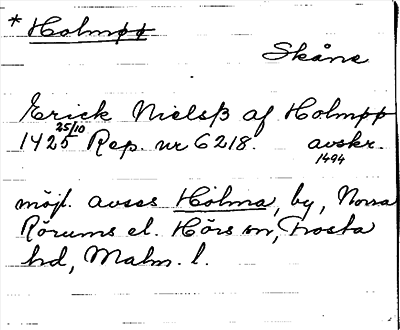 * Holmpp
Skåne
Erick Nielsß af Holmpp
1425 25/10 Rep. nr 6218. avskr.
1494
möjl. avses Holma, by, Norra
Rörums el. Hörs sn, Frosta
hd, Malm. l.